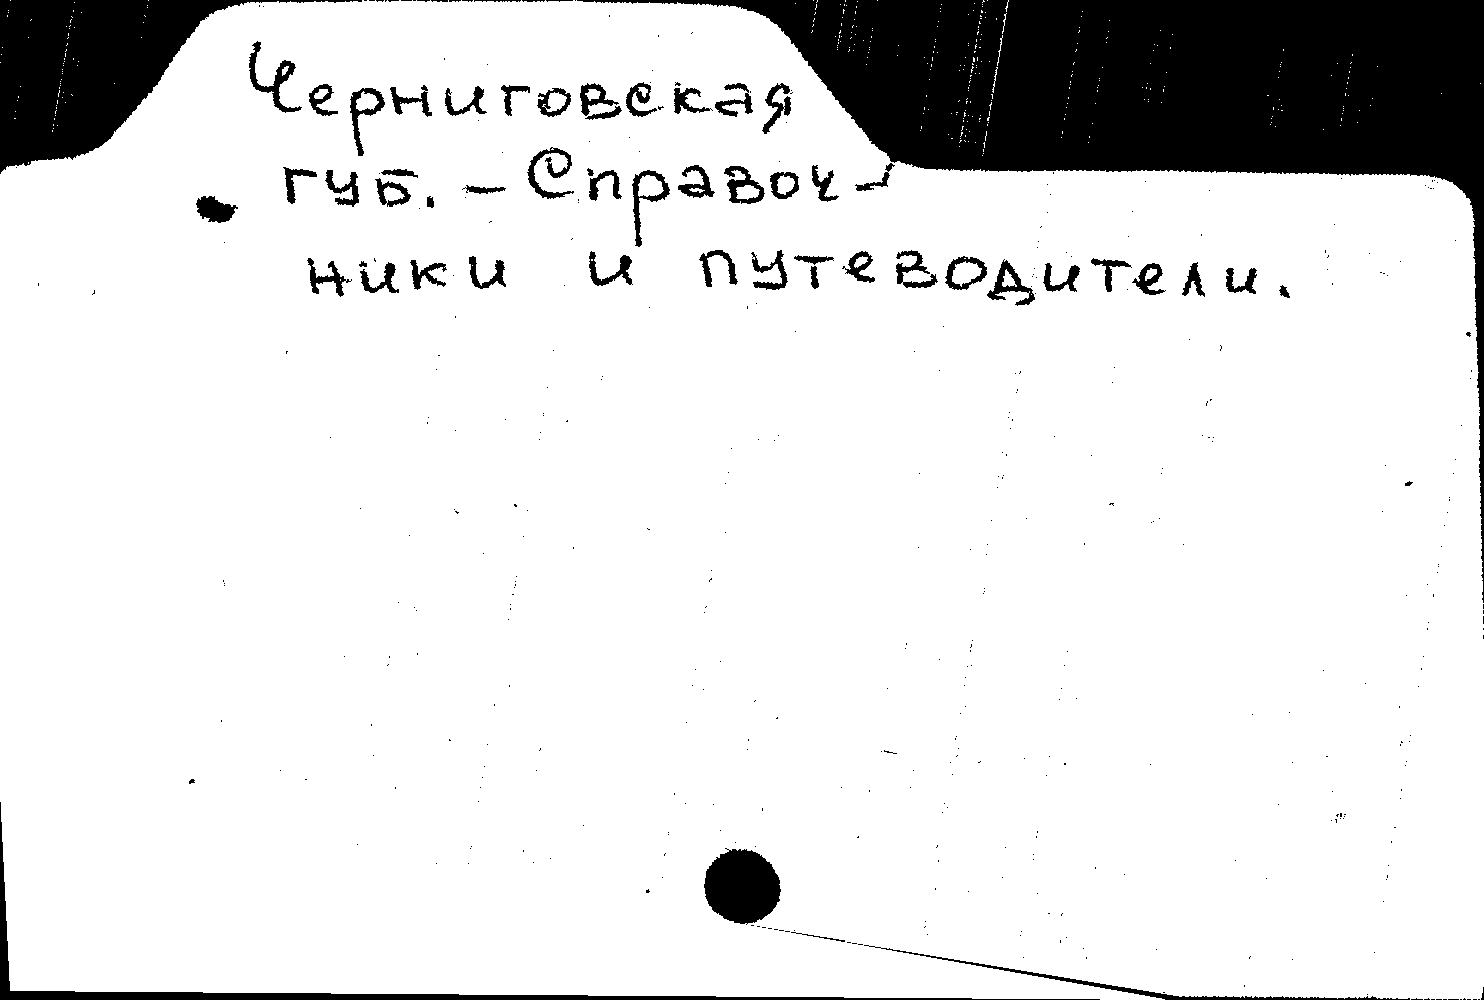 Черниговская
губ. – Справоч-
ники и путеводители.